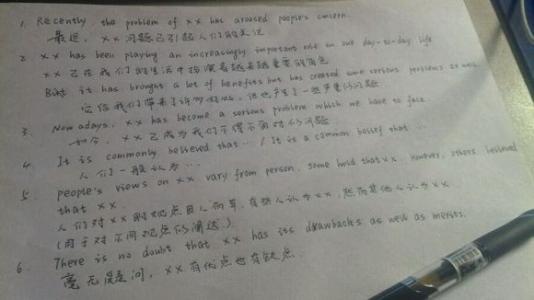 1. Recently the problem of xx has aroused people's concern.
最近, xx 问题已引起人们的关注
2. xx has been playing an increasingly important role in our day-to-day life
xx 已在我们的生活中扮演着越来越重要的角色
But it has brought a lot of benefits but has created some serious problems as well.
它给我们带来了许多好处, 但也产生了一些严重的问题
3. Nowadays, xx has become a serious problem which we have to face.
如今, xx 已成为我们不得不面对的问题
4. It is commonly believed that... / It is a common belief that...
人们一般认为...
5. people's views on xx vary from person, some hold that xx. However, others believed
that xx.
人们对xx的观点因人而异, 有些人认为xx, 然而其他人认为xx.
(用于对不同观点的阐述)
6. There is no doubt that xx has its drawbacks as well as merits.
毫无疑问, xx 有优点也有缺点.